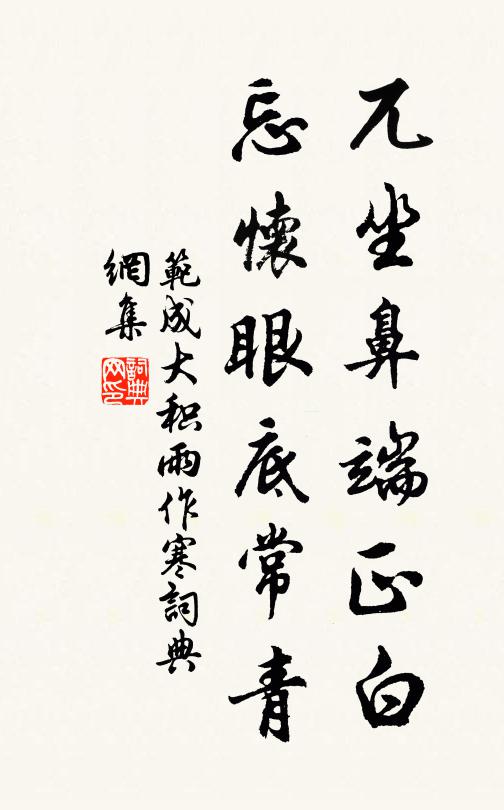 兀坐鼻端正白
忘懷眼底常青
範成大积雨作寒詞典
網集
詞典
网印